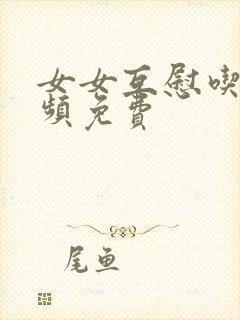 女女互慰喫
頻免費
尾鱼